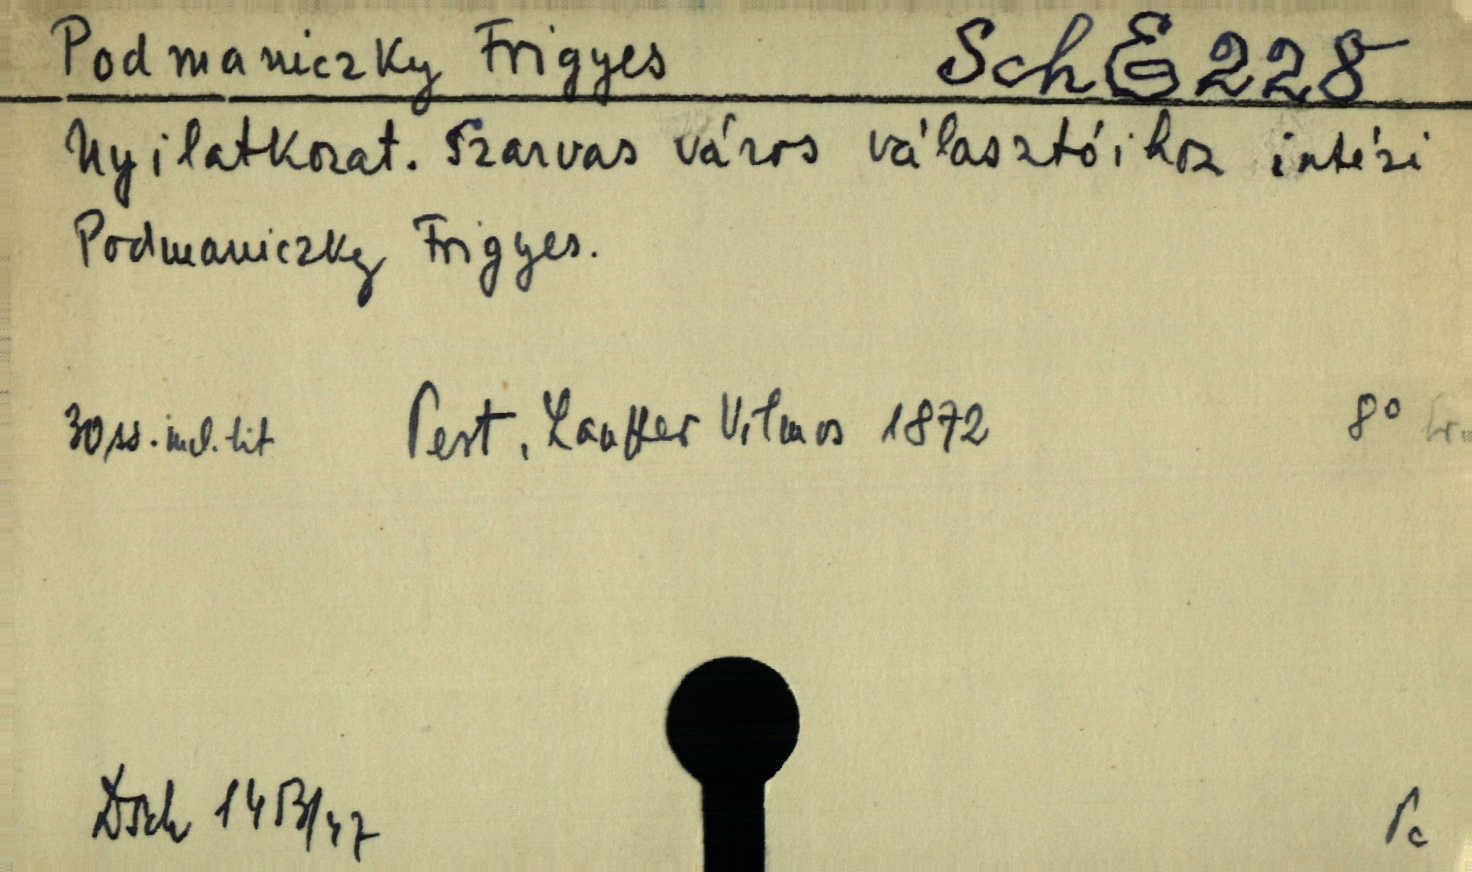 Podmaniczky Frigyes SchE 228
Nyilatkozat. Szarvas város választóihoz intézi
Podmaniczky Frigyes.
30 ss. incl. tit Pest, Lauffer Vilmos 1872 8°
Dsch 14
Pc